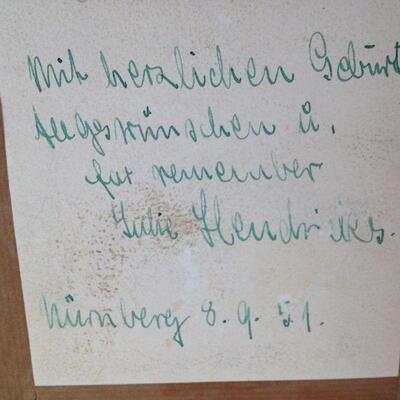 Mit herzlichen Geburt
stagswünschen u.
for remember
Julie Hendrickes.
Nürnberg 8.9.51.